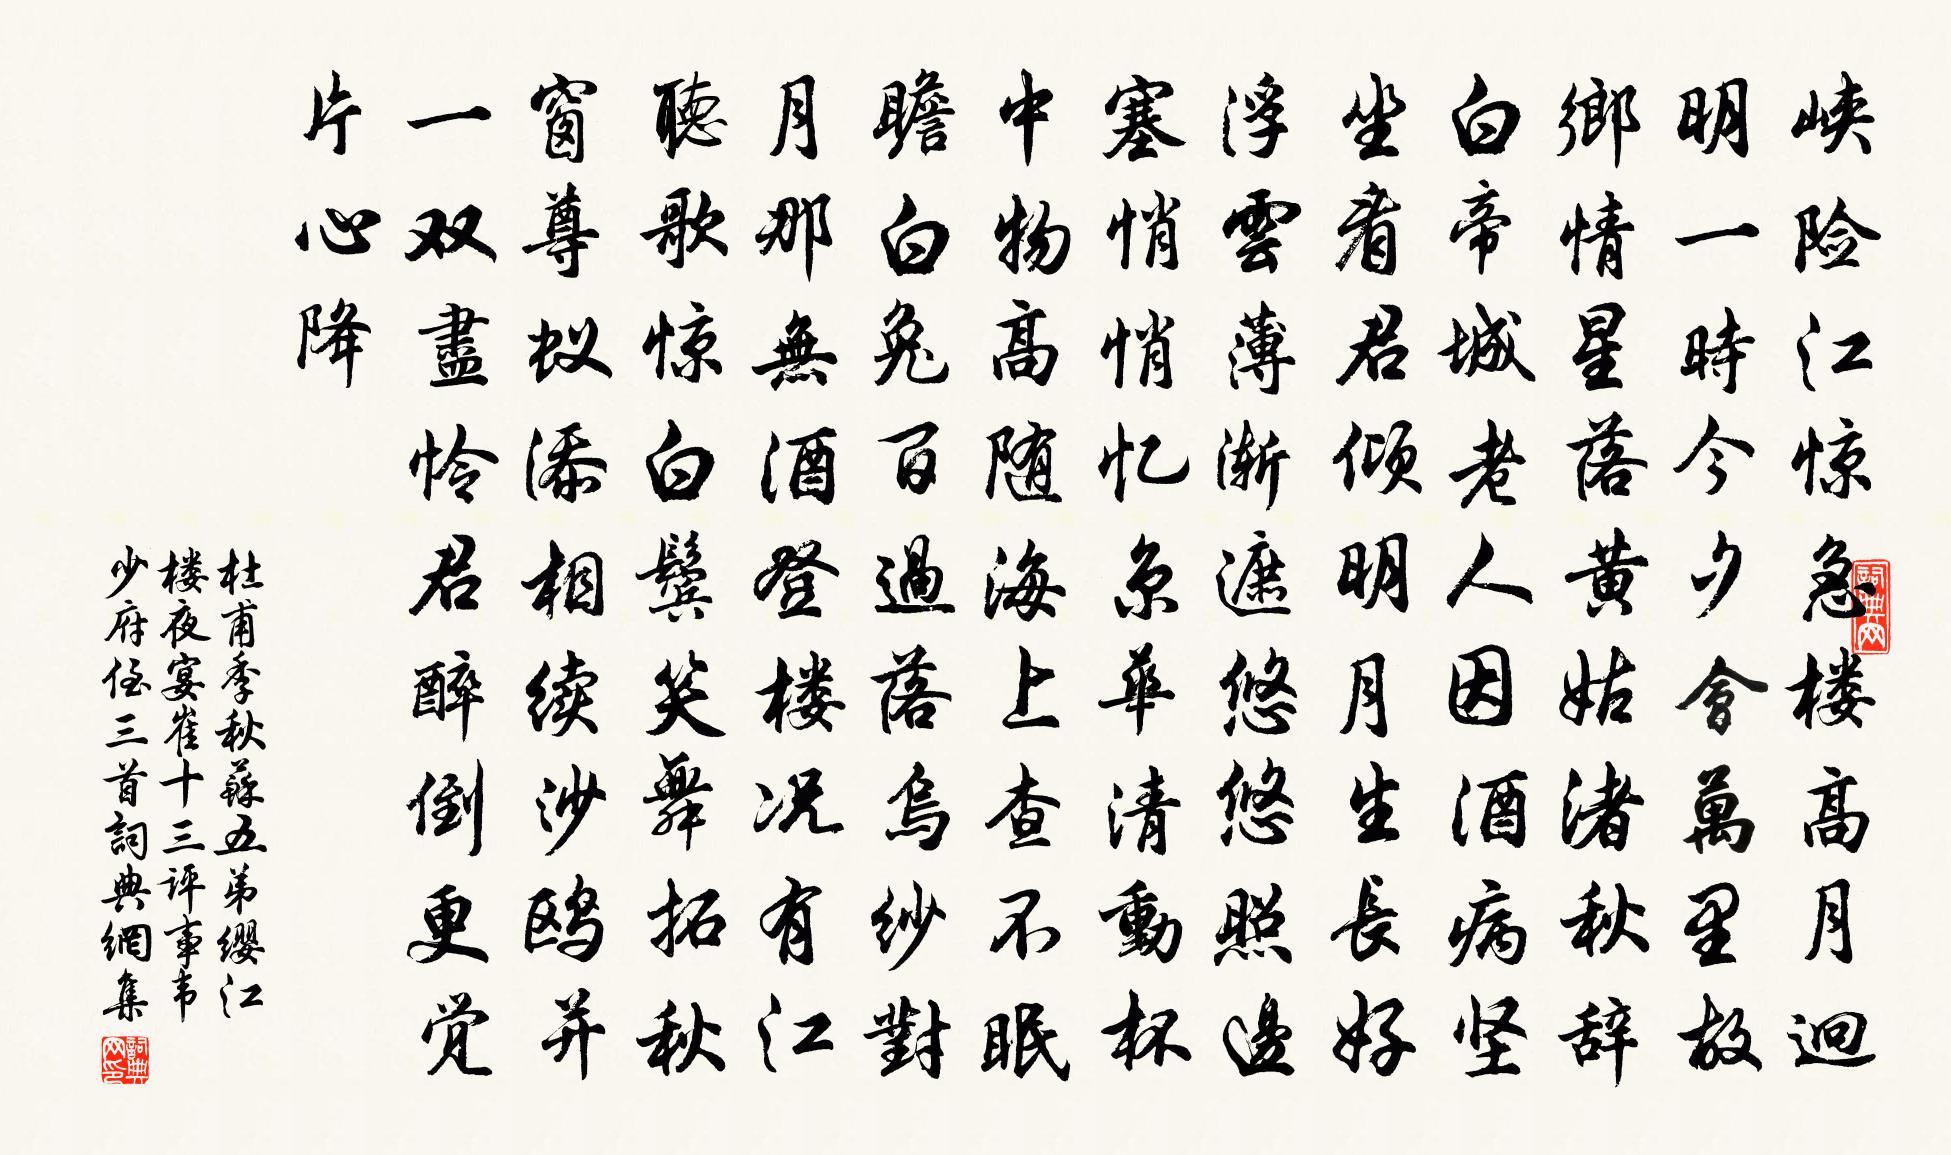 峡险江惊急楼高月迥
明一時今夕會萬里故
鄉情星落黄姑渚秋辞
白帝城老人因酒病坚
坐看君倾明月生長好
浮雲薄渐遮悠悠照邊
塞悄悄忆京華清動杯
中物高随海上查不眠
瞻白兔百過落烏紗對
月那無酒登楼况有江
聽歌惊白鬓笑舞拓秋
窗尊蚁添相续沙鸥并
一双盡怜君醉倒更觉
片心降
杜甫季秋蘇五弟缨江
楼夜宴崔十三评事韦
少府侄三首詞典網集
詞典网
詞典网印